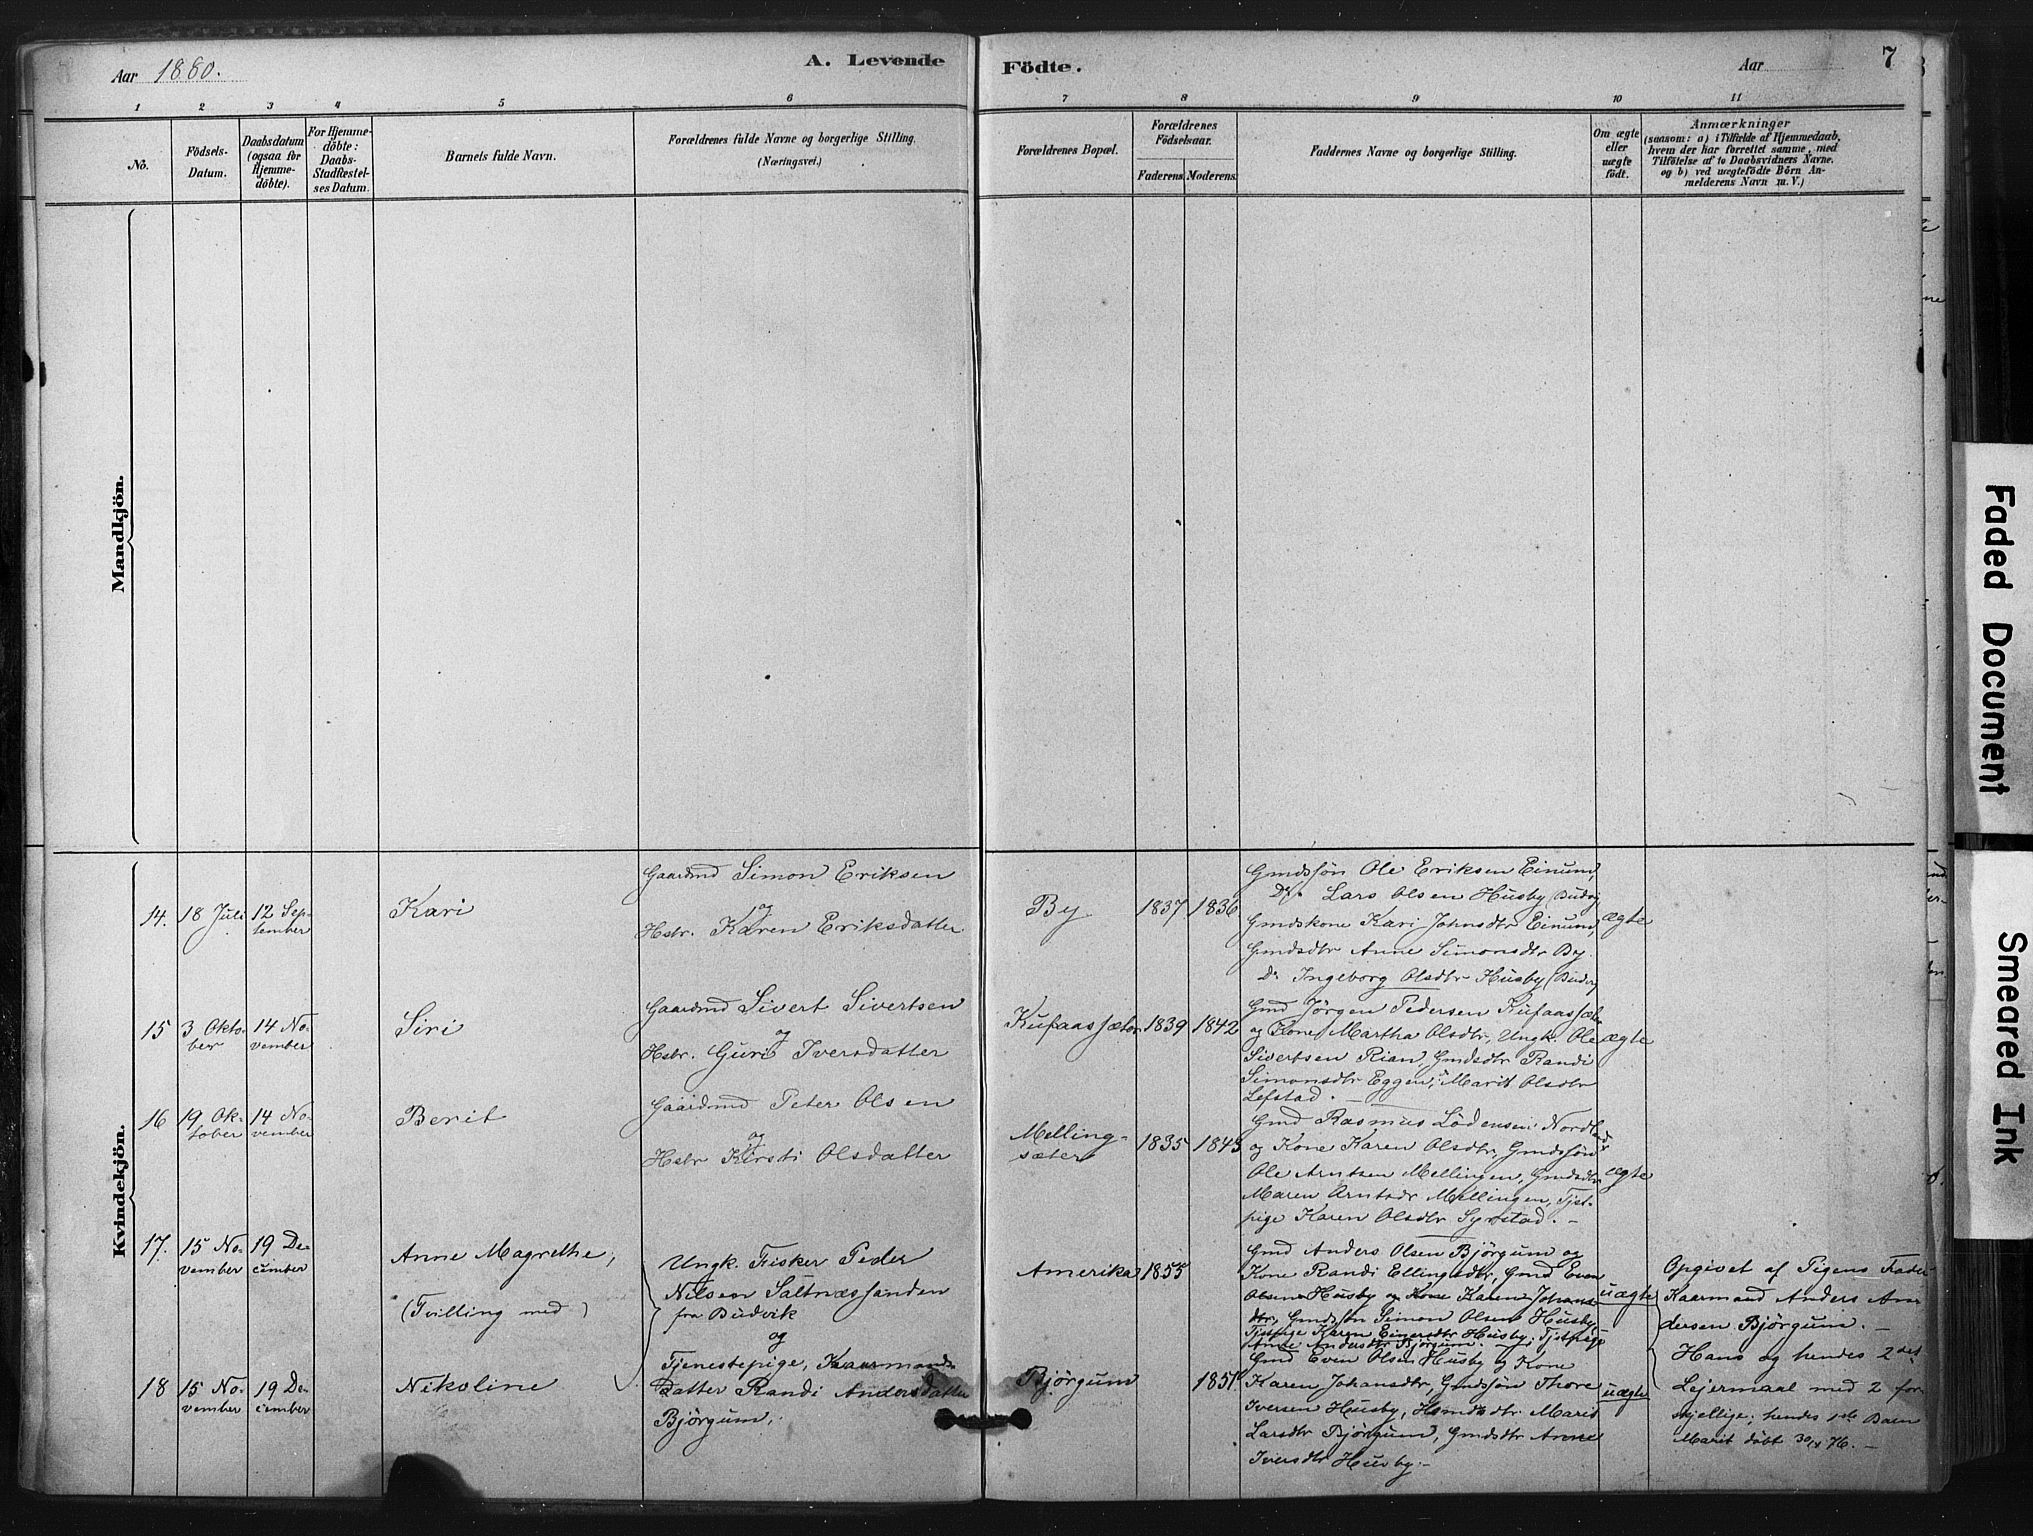 Aar 1880.
A. Levende
Födte.
Aar
7
1 2 3 4 5 6 7 8 9 10 11
No.
Födsels-
Datum.
Daabsdatum
(ogsaa for
Hjemme-
döbte).
For Hjemme-
döbte:
Daabs-
Stadfæstel-
ses Datum.
Barnets fulde Navn.
Forældrenes fulde Navne og borgerlige Stilling.
(Næringsvei.)
Forældrenes Bopæl.
Forældrenes
Födselsaar.
Faderens. Moderens.
Faddernes Navne og borgerlige Stilling.
Om ægte
eller
uægte
födt.
Anmærkninger
(saasom: a) i Tilfælde af Hjemmedaab,
hvem der har forrettet samme, med
Tilföielse af to Daabsvidners Navne.
og b) ved uægtefödte Börn An-
melderens Navn m. V.)
Mandkjön.
Kvindekjön.
14.
18 Juli
12 Sep-
tember
Kari
Gaardmd Simon Eriksen
og
Hstr. Karen Eriksdatter
By
1837
1836
Gmdssøn Ole Eriksen Einum,
Ds. Lars Olsen Husby (Budv)
Gmdskone Kari Johnsdtr Einum,
Gmdsdtr Anne Simonsdtr By
Ds Ingeborg Olsdtr Husby (Budv)
ægte
15
3 Okto-
ber
14 No-
vember
Siri
Gaardmd Sivert Sivertsen
og
Hstr. Guri Iversdatter
Kufaassæter
1839
1842
Gmd Jørgen Pedersen Kufaassæter
og Kone Martha Olsdtr, Ungk. Ole
Sivertsen Rian, Gmdsdtr Randi
Simonsdtr Eggen, Marit Olsdtr
Lefstad.
ægte
16
19 Ok-
tober
14 No-
vember
Berit
Gaardmd Peter Olsen
og
Hstr Kirsti Olsdatter
Melling-
sæter
1835
1843
Gmd Rasmus Lødensen Nordl
og Kone Karen Olsdtr, Gmdssøn
Ole Arntsen Mellingen, Gmdsdtr
Maren Arntsdr Mellingen, Tjst-
pige Karen Olsdtr Syrstad. -
ægte
17.
15 No-
vember
19 De-
cember
Anne Magrethe,
(Tvilling med)
Ungk. Fisker Peder
Nilsen Saltnæssanden
fra Budvik
og
Tjenestepige, Kaarmands
Datter Randi Andersdatter
Bjørgum.
Amerika
1855
Gmd Anders Olsen Bjørgum og
Kone Randi Ellingsdtr, Gmd Even
Olsen Husby og Kone Karen Johans-
dtr, Gmdssøn Simon Olsen Husby
Tjstpige Karen Einersdtr Husby, Tjstpige
Anne Andersdtr Bjørgum.
uægte
Opgivet af Pigens Fader
Kaarmand Anders An-
dersen Bjørgum. -
Hans og hendes 2det
Lejermaal med 2 for
skjellige; hendes 1ste Barn
Marit døbt 30/4 76. -
18
15 No-
vember
19 De-
cember
Nikoline
Bjørgum
1851
Gmd Even Olsen Husby og Kone
Karen Johansdtr, Gmdssøn Thore
Iversen Husby, Hsmdsdtr Marit
Larsdtr Bjørgum, Gmdsdtr Anne
Iversdtr Husby. -
uægte
Faded Document
Smeared Ink